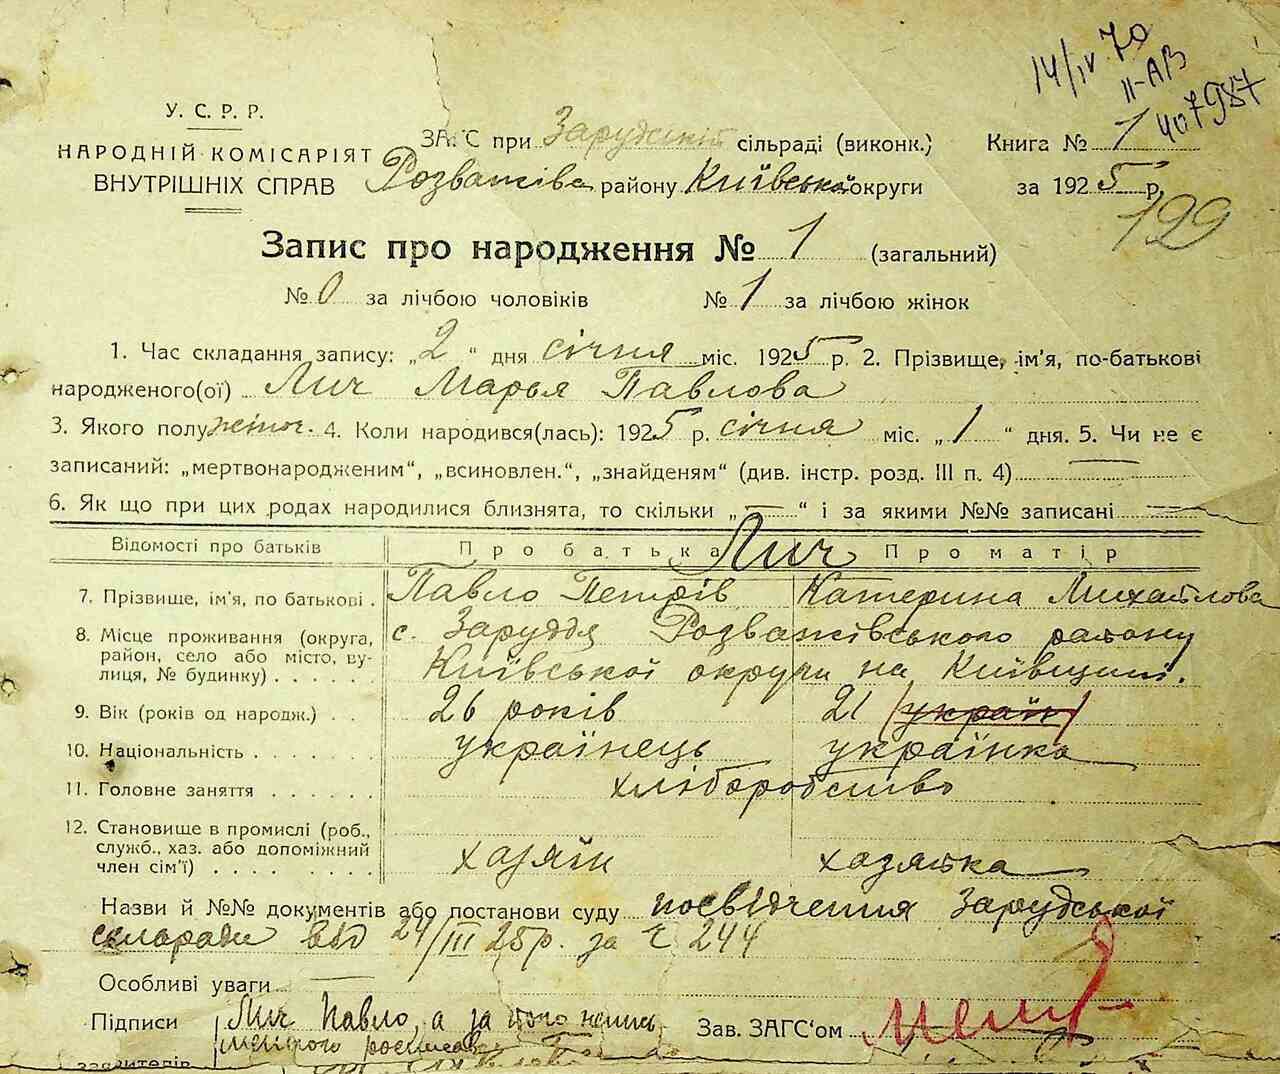 14/IV 70
II-АВ
407987
У. С. Р. Р.
НАРОДНІЙ КОМІСАРІЯТ
ВНУТРІШНІХ СПРАВ
ЗАГС при Зарудській сільраді (виконк.) Книга № 1
Розважівс району Київської округи за 1925 р.
129
Запис про народження № 1 (загальний)
№ 0 за лічбою чоловіків № 1 за лічбою жінок
1. Час складання запису: „2“ дня січня міс. 1925 р. 2. Прізвище, ім'я, по-батькові
народженого(ої) Лич Марья Павлова
3. Якого полу жіноч. 4. Коли народився(лась): 1925 р. січня міс. „1“ дня. 5. Чи не є
записаний: „мертвонародженим“, „всиновлен.“, „знайденям“ (див. інстр. розд. III п. 4)
6. Як що при цих родах народилися близнята, то скільки „—“ і за якими №№ записані
Відомості про батьків Про батька Лич Про матір
7. Прізвище, ім'я, по батькові . Павло Петрів Катерина Михайлова
8. Місце проживання (округа, с. Заруддя Розважівського району
район, село або місто, ву-
лиця, № будинку) . . . . . Київської округи на Київщині.
9. Вік (років од народж.) . . 26 років 21 (україн)
10. Національність . . . . . . українець українка
11. Головне заняття . . . . . . хліборобство
12. Становище в промислі (роб.,
служб., хаз. або допоміжний
член сім'ї) . . . . . . . . хазяїн хазяйка
Назви й №№ документів або постанови суду посвідчення Зарудської
сільради від 24/III 25 р. за ч 244
Особливі уваги
Підписи Лич Павло, а за його непись
менного росписавс Зав. ЗАГС'ом
заявителів